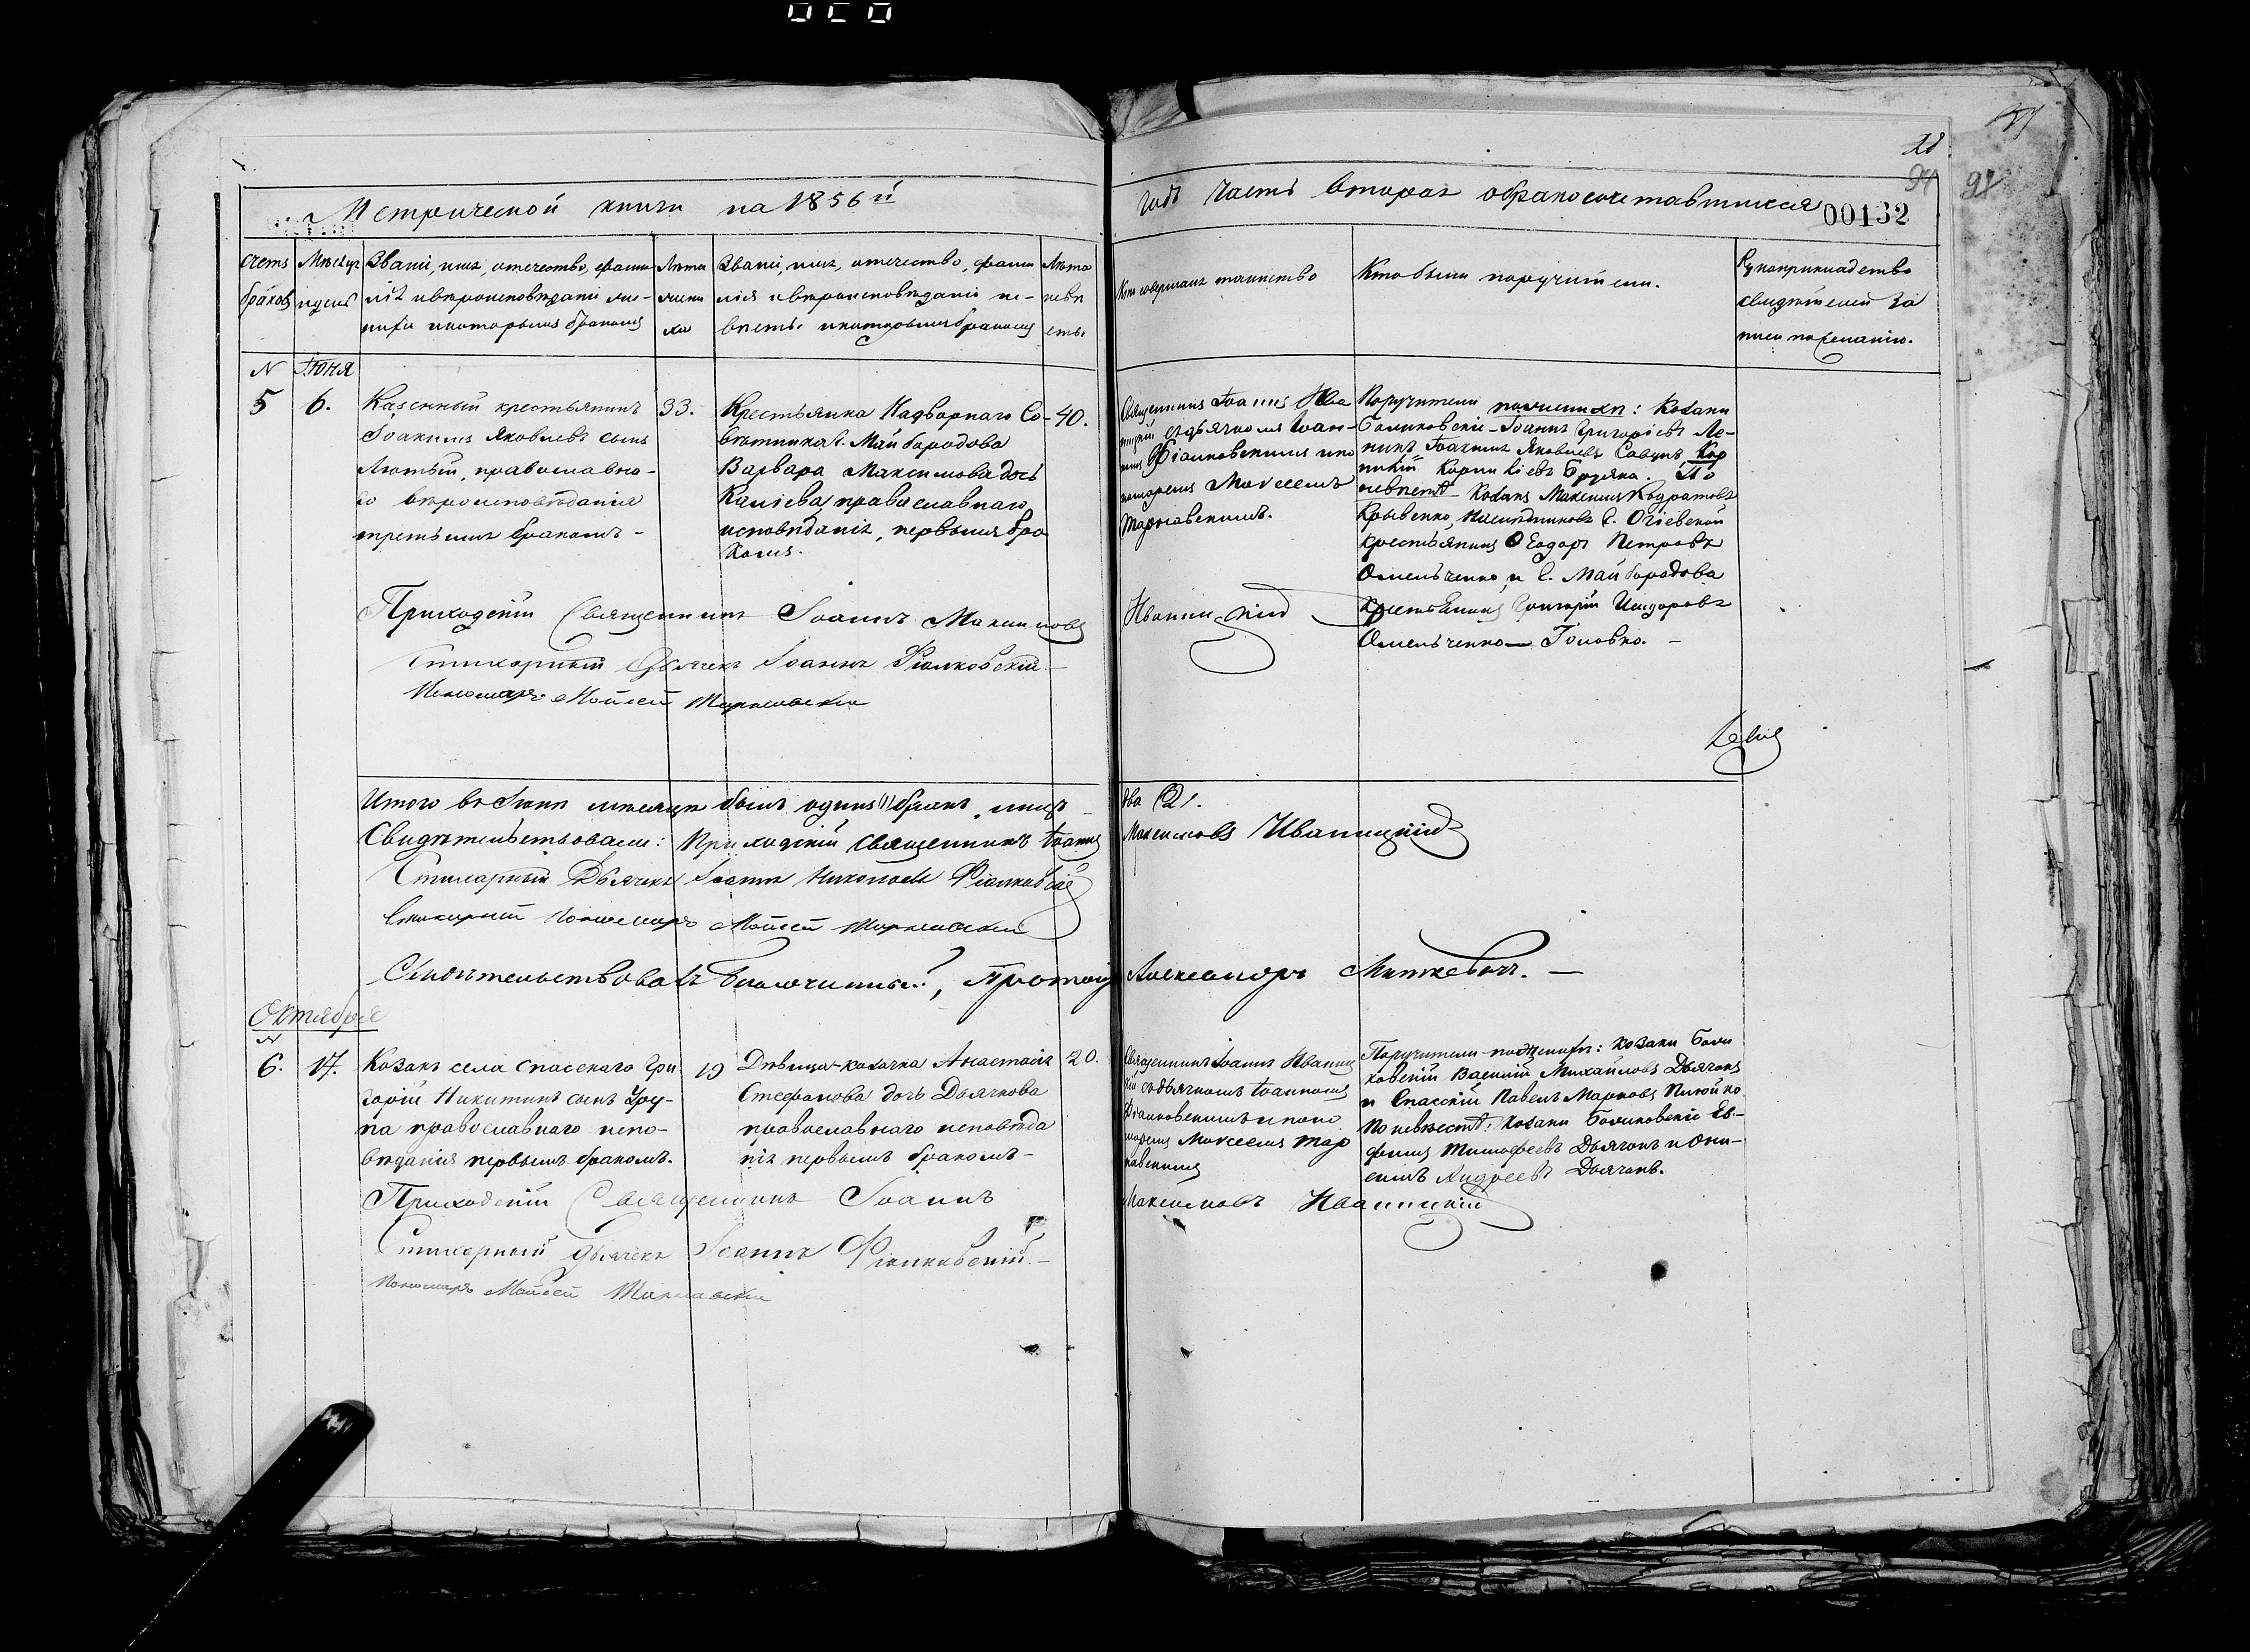 Метрической книги на 1856й
годъ часть вторая о бракосочетавшихся
00132
94
Счетъ браковъ
Мѣсяцъ и день
Званіе, имя, отечество, фами-
лія и вѣроисповѣданіе же-
ниха и которымъ бракомъ
Лѣта жени-
ха
Званіе, имя, отечество, фами
лія и вѣроисповѣданіе не-
вѣсты и которымъ бракомъ
Лѣта невѣ
сты
Кто совершалъ таинство
Кто были поручители.
Рукоприкладство
свидѣтелей за
писи по желанію.
N
Іюня
5
6.
Казенный крестьянинъ
Іоакимъ Яковлевъ сынъ
Лютый, православна-
го вѣроисповѣданія
третьимъ бракомъ -
33.
Крестьянка Надворнаго Со-
вѣтника Г. Майбородова
Варвара Максимова дочь
православнаго
исповѣданія, первымъ бра
комъ.
40.
Священникъ Іоаннъ Ива
ницкій съ дьячкомъ Іоан-
номъ Фіалковскимъ и по
номаремъ Моѵсеемъ
Тарнавскимъ.
Поручители по женихѣ: Козаки
Іоаннъ Григоріевъ
Іоакимъ Яковлевъ
По
невѣстѣ - Козакъ Максимъ
Кривенко,
крестьянинъ Ѳеодоръ Петровъ
Омельченко, и Г. Майбородова
крестьянинъ Григорій Исидоровъ
Омельченко — Головко. -
Приходскій Священникъ Іоаннъ Максимовъ
Иваницкій
Стихарный Дьячекъ Іоаннъ Фіалковскій. -
Пономарь Мойсей Тарнавскій
Итого въ Іюнѣ мѣсяцѣ былъ одинъ (1) бракъ, лицъ
два (2).
Свидѣтельствовали: Приходскій Священникъ Іоаннъ
Максимовъ Иваницкій
Стихарный Дьячекъ Іоаннъ Николаевъ Фіалковскій
Стихарный Пономарь Мойсей Тарнавскій
Свидѣтельствовалъ Благочинный, Протоіерей
Александръ Миткевичъ. —
Октября
N
6.
17.
Козакъ села Спаскаго Гри
горій Никитинъ сынъ
православнаго испо-
вѣданія первымъ бракомъ.
19
Дѣвица-козачка Анастасія
Стефанова дочь Дьячкова
православнаго исповѣда
нія первымъ бракомъ -
20.
Священникъ Іоаннъ Иваниц
кій съ дьячкомъ Іоанномъ
Фіалковскимъ и поно
маремъ Моѵсеемъ Тар
навскимъ
Поручители по женихѣ: козаки
Василій Михайловъ Дьячокъ
и Спасскій Павелъ Марковъ
По невѣстѣ: козаки Ев-
фимъ Тимофеевъ Дьячокъ и Они-
симъ Андреевъ Дьячокъ.
Приходскій Священникъ Іоаннъ
Максимовъ Иваницкій
Стихарный Дьячекъ Іоаннъ Фіалковскій. -
Пономарь Мойсей Тарнавскій